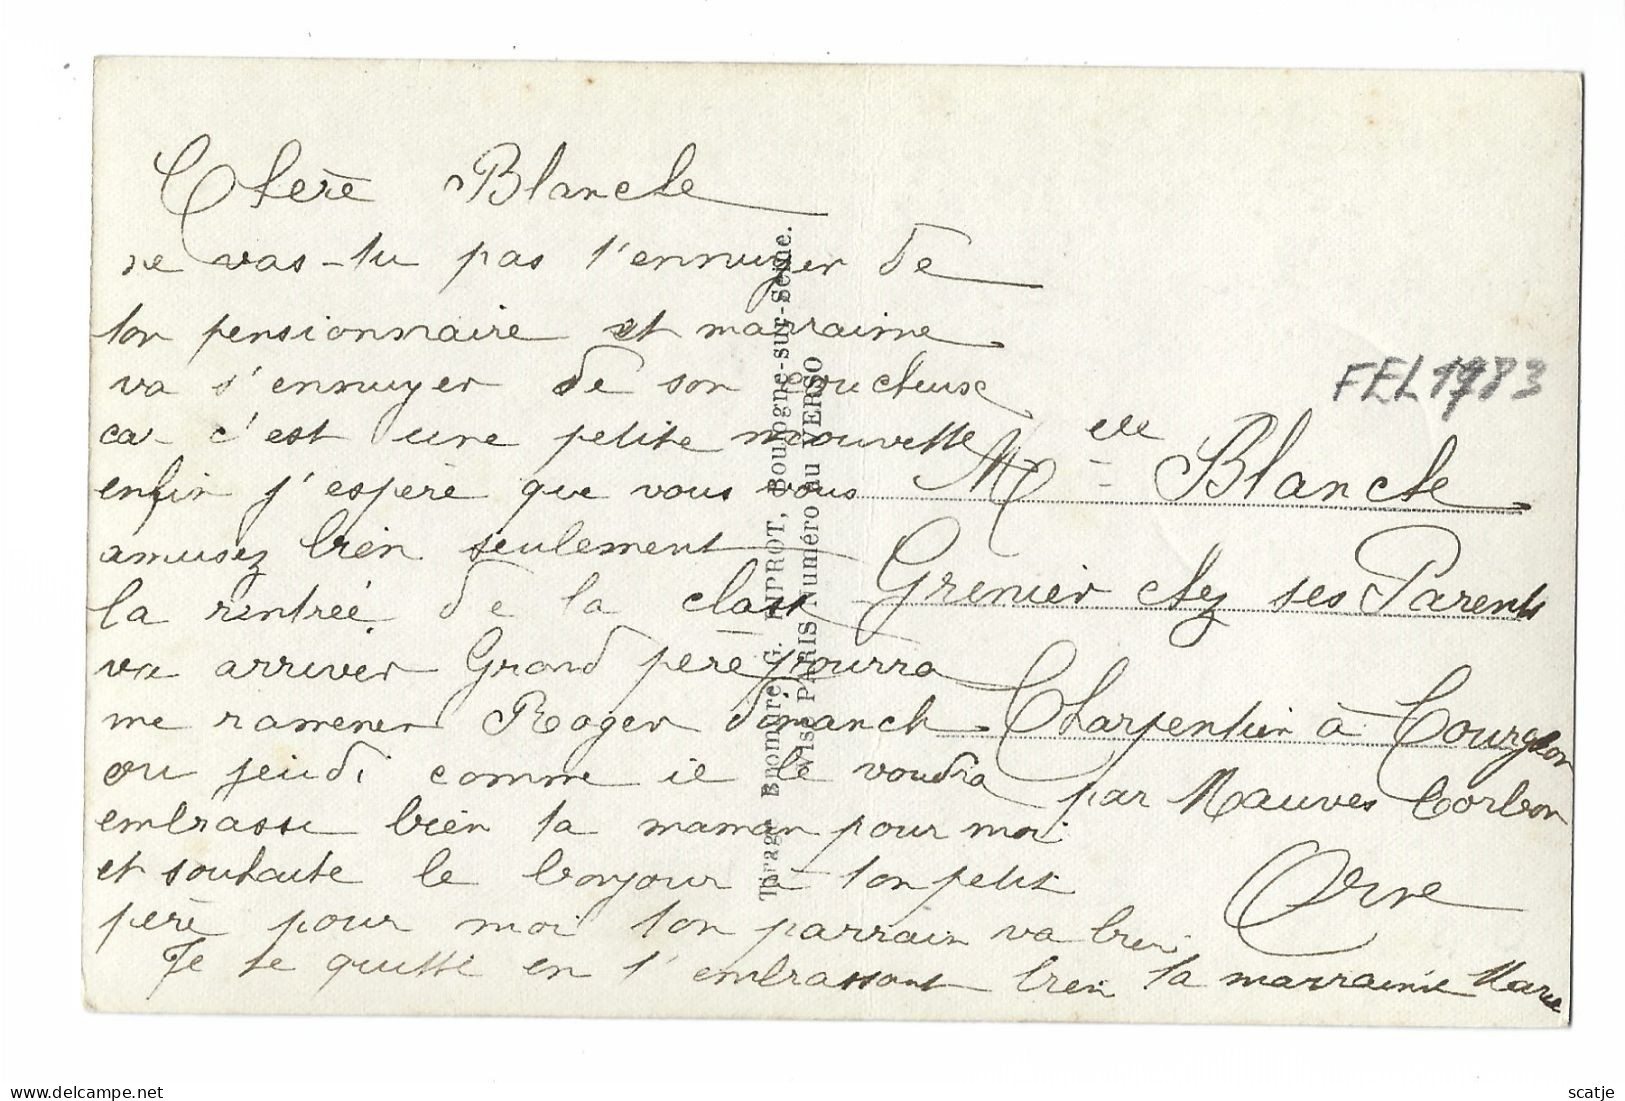 Chère Blanche
ne vas-tu pas t'ennuyer de
ton pensionnaire et marraine
va s'ennuyer de son
ca c'est une petite mouvette
enfin j'espère que vous vous
amusez bien seulement
la rentrée de la class
va arriver Grand père pourra
me ramener Roger dimanch
ou jeudi comme il le voudra
embrasse bien ta maman pour moi
et souhaite le bonjour à ton petit
père pour moi ton parrain va bien
Je te quitte en t'embrassant bien ta marraine Marie
FEL 1983
Melle Blanche
Grenier chez ses Parents
Charpentier à Courgeon
par Mauves Corbon
Orne
Tirage Bromure G. PIPROT, Boulogne-sur-Seine.
Visé PARIS Numéro au VERSO
scatje